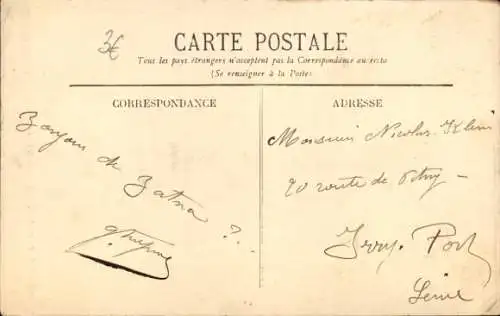 3€
CARTE POSTALE
Tous les pays étrangers n'acceptent pas la Correspondance au recto
(Se renseigner à la Poste)
CORRESPONDANCE
ADRESSE
Bonjour de Batna
Monsieur Nicolas Klein
20 route de
Ivry. Port
Seine